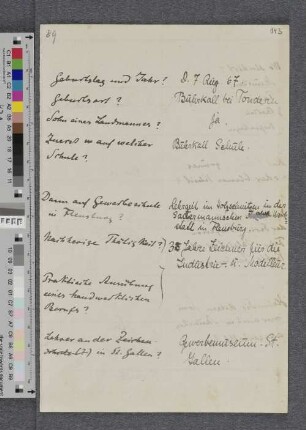 Geburtstag und Jahr? D. 7 Aug. 67
Geburtsort? Bührkall bei Tondern
Sohn eines Landmannes? Ja.
Zuerst auf welcher Bührkall Schule.
Schule?
Dann auf Gewerbeschule Lehrzeit im Holzschnitzen in der
in Flensburg? Sauermannschen
Flensburg.
Nachherige Thätigkeit? 3 Jahre Zeichner für die
Industrie
Praktische Ausübung
eines handwerklichen
Berufs?
Lehrer an der Zeichen Gewerbemuseum St.
in St. Gallen? Gallen.